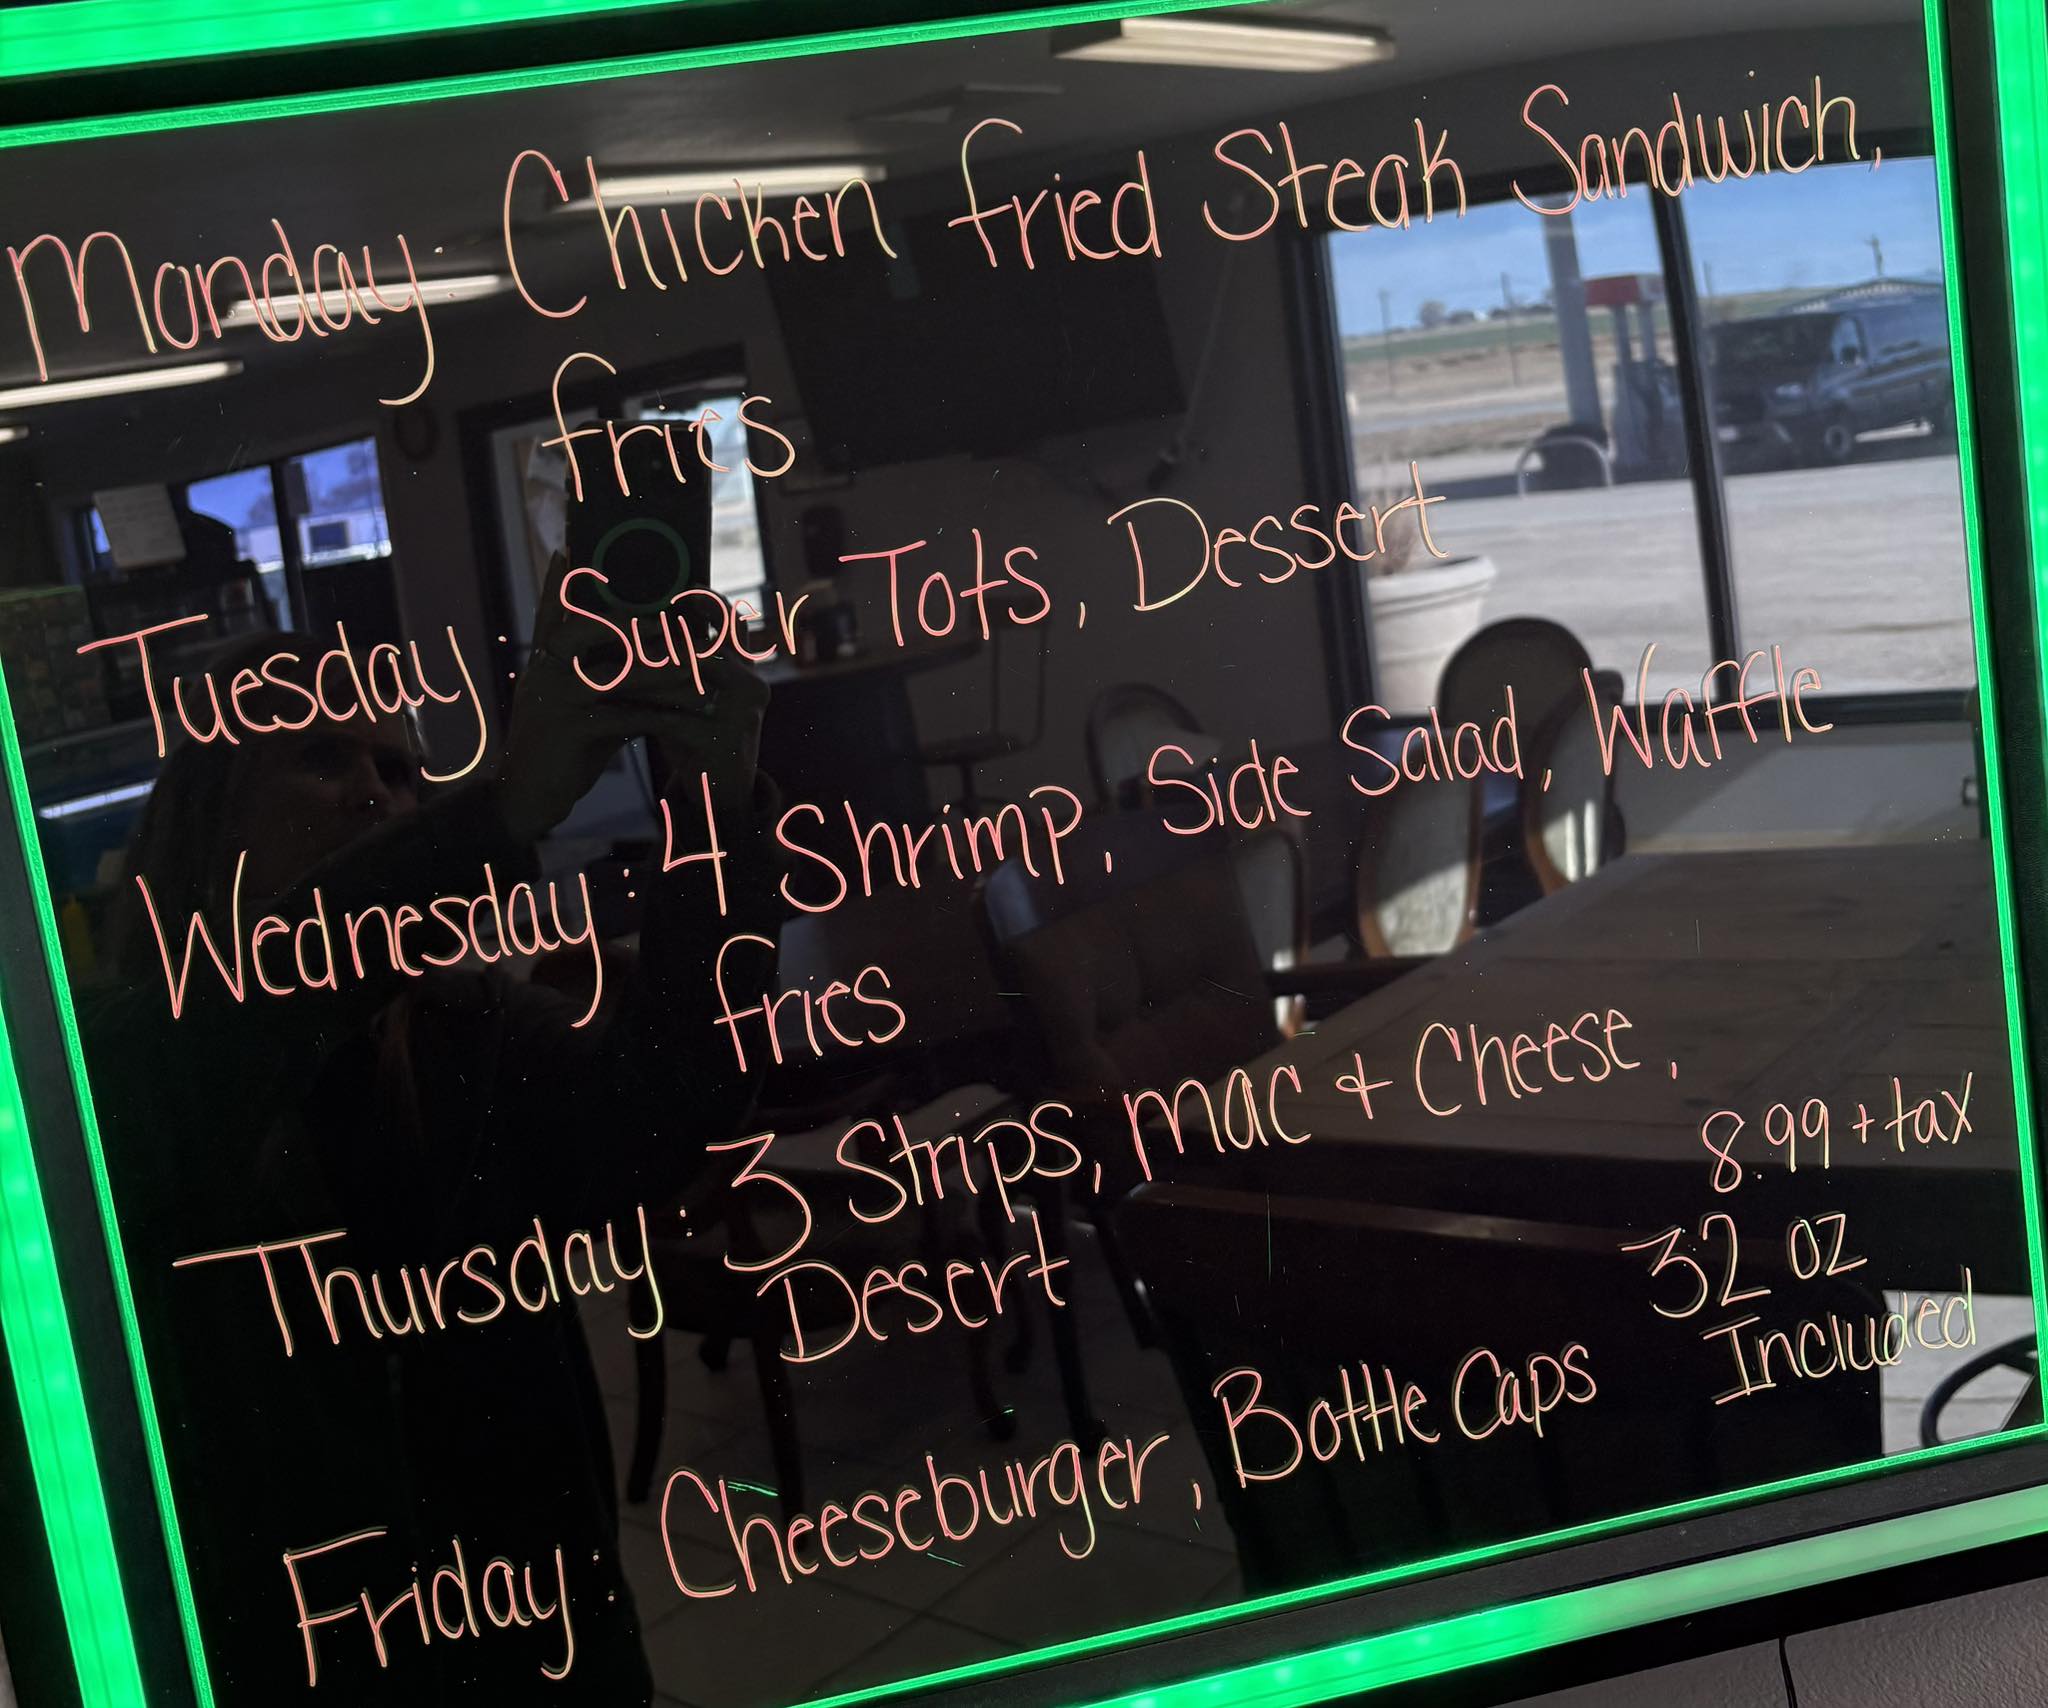 Monday: Chicken fried Steak Sandwich,
fries
Tuesday: Super Tots, Dessert
Wednesday: 4 Shrimp, Side Salad, Waffle
fries
Thursday: 3 Strips, Mac & Cheese,
Desert
Friday: Cheeseburger, Bottle Caps
8.99 + tax
32 oz
Included